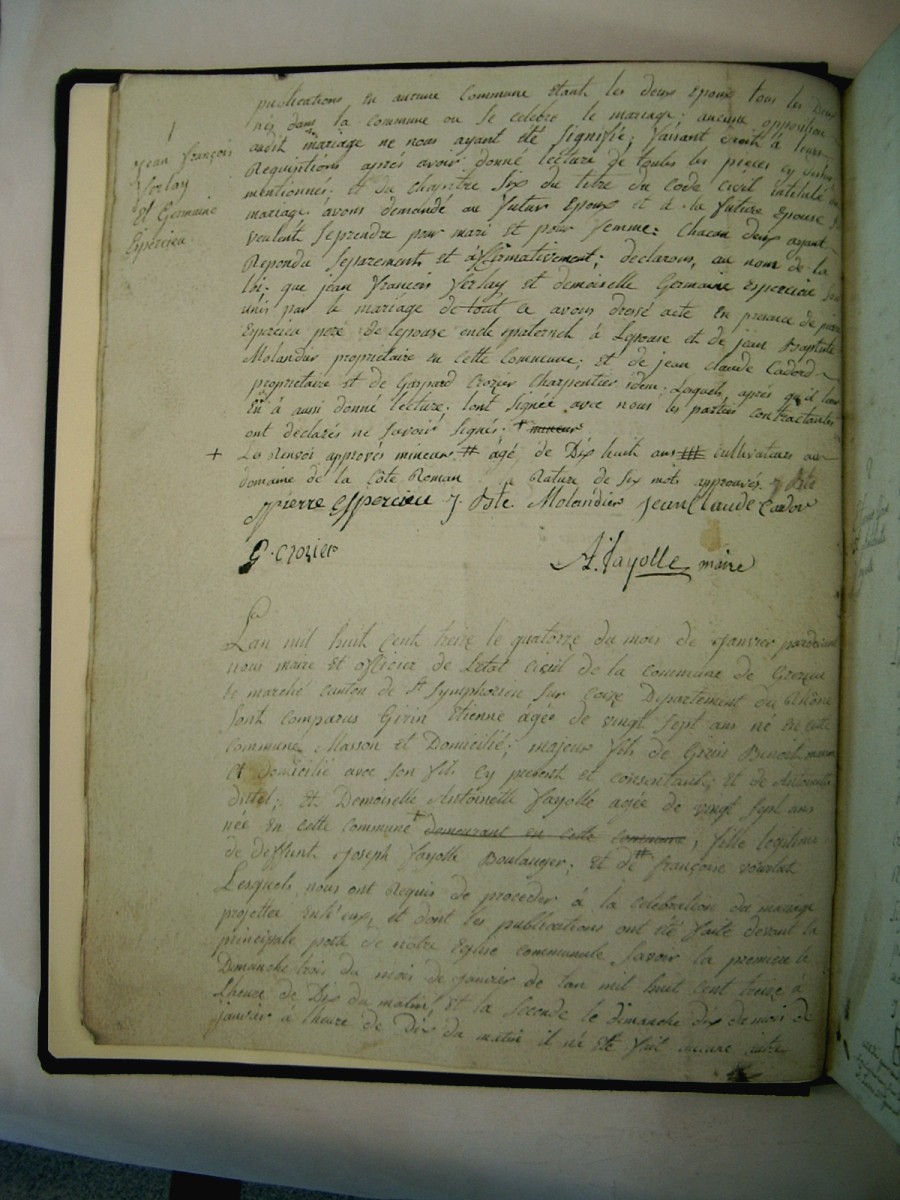 1
jean françois
Verlay
Et Germaine
Espercieu.
publications, En aucune Commune étant les deux Epoux tous les Deux
nés dans la commune ou se celebre le mariage; aucune opposition
audit mariage ne nous ayant été signifié; faisant droit à leurs
Requisitions après avoir donné lecture de toutes les pièces cy dessus
mentionnés. et du chapitre six du titre du Code civil intitulé
mariage avons demandé au futur Epoux et à la future Epouse
veulent se prendre pour mari et pour femme: chacun deux ayant
Repondu separements et affirmativement; declarons, au nom de la
loi, que jean françois Verlay et demoiselle Germaine Espercieu sont
unis par le mariage de tout ce avons dressé acte en presence de pierre
Espercieu père de lepouse oncle maternelle à Lepouse et de jean Baptiste
Molandier proprietaire en cette Commune; et de jean claude Cadord
proprietaire et de Gaspard Crozier Charpentier idem. Lesquels, après qu'il leur
En à aussi donné lecture. lont signée avec nous les parties contractantes
ont declarés ne savoir signés. + mineur
+ Les Renvoi approvés mineur. # agé de Dix huit ans ## cultivateurs au
domaine de la Côte Roman Rature de six mots approuvés. J Bte
pierre Esspercieu J. Bte. Molandier jean Claude Cador
G. Crozier A. fayolle maire
Lan mil huit Cent treize le quatorze du mois de janvier pardevant
nous maire et officier de Letat civil de la commune de Grezieu
le marché canton de St Symphorien sur Coize Departement du Rhône
sont comparus Girin Etienne agée de vingt sept ans né En cette
commune Masson et Domicilié; majeur fils de Girin Benoit
et domicilié avec son fils Cy present et consentant; et de Antoinette
; Et Demoiselle Antoinette fayolle agée de vingt sept ans
née En cette commune + demeurant en cette commune; fille legitime
de deffunt joseph fayolle Boulanger; et de # françoise
Lesquels nous ont Requis de proceder à la celebration du mariage
projetté entr'eux, et dont les publications ont été faite devant la
principale porte de notre Eglise communale Savoir la premiere le
Dimanche trois du mois de janvier de lan mil huit Cent treize à
Lheure de Dix du matin, et la seconde le dimanche dix du mois de
janvier à lheure de Dix du matin il ne été fait aucune autre